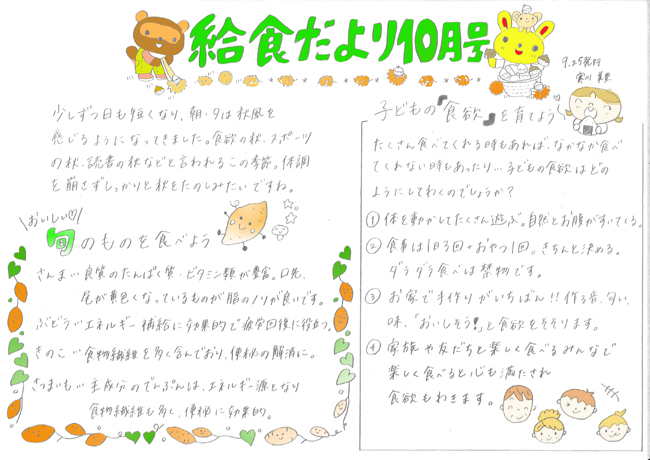 給食だより10月号
9.25発行
少しずつ日も短くなり、朝・夕は秋風を
感じるようになってきました。食欲の秋、スポーツ
の秋、読書の秋などと言われるこの季節。体調
を崩さずしっかりと秋をたのしみたいですね。
おいしい♡
旬のものを食べよう
さんま…良質のたんぱく質・ビタミン類が豊富。口先、
尾が黄色くなっているものが脂のノリが良いです。
ぶどう…エネルギー補給に効果的で疲労回復に役立つ。
きのこ…食物繊維を多く含んでおり、便秘の解消に。
さつまいも…主成分のでんぷんは、エネルギー源となり
食物繊維も多く、便秘に効果的。
子どもの『食欲』を育てよう
たくさん食べてくれる時もあれば、なかなか食べ
てくれない時もあったり…子どもの食欲はどの
ようにしてわくのでしょうか?
① 体を動かしてたくさん遊ぶ。自然とお腹がすいてくる。
② 食事は1日3回+おやつ1回。きちんと決める。
ダラダラ食べは禁物です。
③ お家で手作りがいちばん!!作る音、匂い、
味、「おいしそう!」と食欲をそそります。
④ 家族や友だちと楽しく食べるみんなで
楽しく食べると心も満たされ
食欲もわきます。